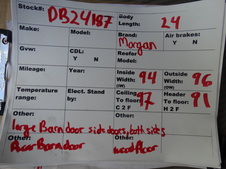 Stock#: DB24187 Body Length: 24
Make: Model: Brand: Morgan Air brakes: Y N
Gvw: CDL: Y N Reefer Model:
Mileage: Year: Inside Width (IW) 94 Outside Width (OW) 96
Temperature range: Elect. Stand by: Ceiling To floor: C 2 F 97 Header To floor: H 2 F 91
Other: large Barn door side doors, both sides
Other: Rear Barn door Other: wood floor
Other: